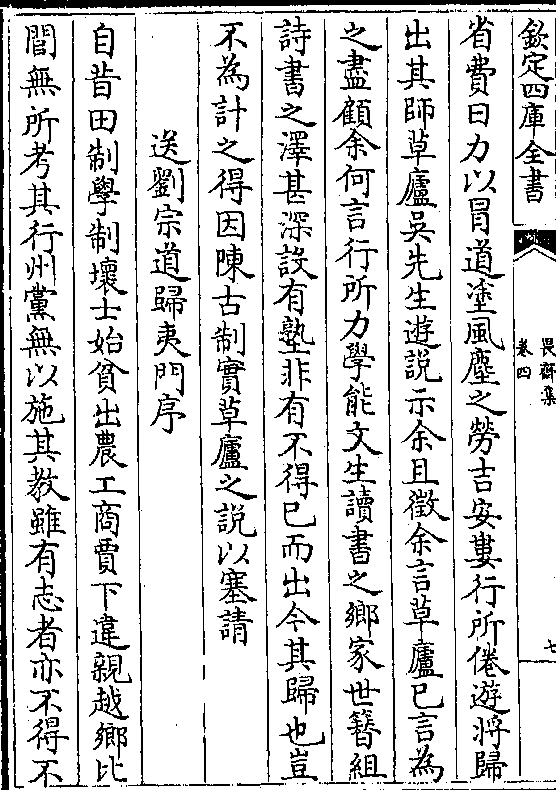 欽定四庫全書
畏齋集
卷四
七
省費日力以冒道塗風塵之勞吉安婁行所倦遊將歸
出其師草廬吳先生遊說示余且徵余言草廬已言為
之盡顧余何言行所力學能文生讀書之鄉家世簪組
詩書之澤甚深設有塾非有不得已而出今其歸也豈
不為計之得因陳古制實草廬之說以塞請
送劉宗道歸夷門序
自昔田制學制壞士始貧出農工商賈下違親越鄉比
閭無所考其行州黨無以施其教雖有志者亦不得不